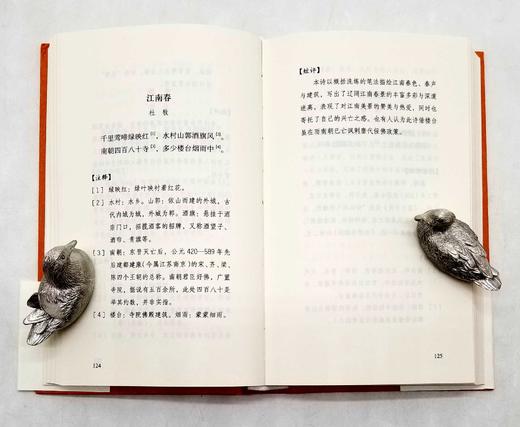 江南春
杜牧
千里莺啼绿映红[1]，水村山郭酒旗风[2]。
南朝四百八十寺[3]，多少楼台烟雨中[4]。
【注释】
[1] 绿映红：绿叶映衬着红花。
[2] 水村：水乡。山郭：依山而建的外城，
古代内城为城，外城为郭。酒旗：悬挂于酒
店门口，招揽酒客的招牌，又称酒望子、
酒帘、青旗等。
[3] 南朝：东晋灭亡后，公元420—589年先
后建都建康（今属江苏南京）的宋、齐、梁、
陈四个王朝的总称。南朝君臣好佛，广置
寺院，据说有五百余所，此处四百八十是
举其约数，并非实指。
[4] 楼台：寺院佛殿建筑。烟雨：蒙蒙细雨。
124
【短评】
本诗以概括洗练的笔法描绘江南春色、春声
与建筑，写出了辽阔江南春景的丰富多彩与深邃
迷离，表现了对江南美景的赞美与热爱，同时也
寄托了自己的兴亡之感。也有人认为此诗借楼台
虽在而南朝已亡讽刺唐代佞佛政策。
125